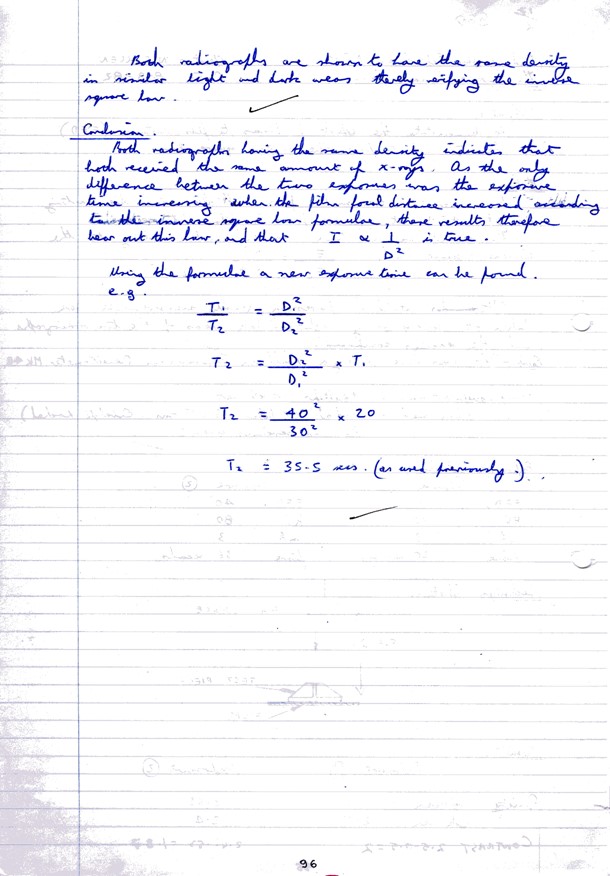 Both radiographs are shown to have the same density
in similar light and dark areas thereby verifying the inverse
square law.
Conclusion.
Both radiographs having the same density indicates that
both received the same amount of x-rays. As the only
difference between the two exposures was the exposure
time increasing when the film focal distance increased according
to the inverse square law formulae, these results therefore
bear out this law, and that I ∝ 1/D² is true.
Using the formulae a new exposure time can be found.
e.g.
T₁/T₂ = D₁²/D₂²
T₂ = D₂²/D₁² × T₁
T₂ = 40²/30² × 20
T₂ = 35.5 secs. (as used previously.)
96